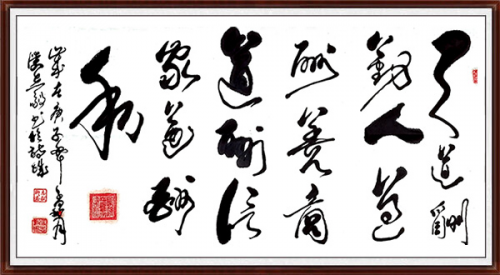 天道酬
勤人道
酬善商
道酬信
家道酬
和
岁在庚子